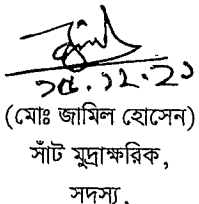 ১৫.১২.২১
(মোঃ জামিল হোসেন)
সাঁট মুদ্রাক্ষরিক,
সদস্য,